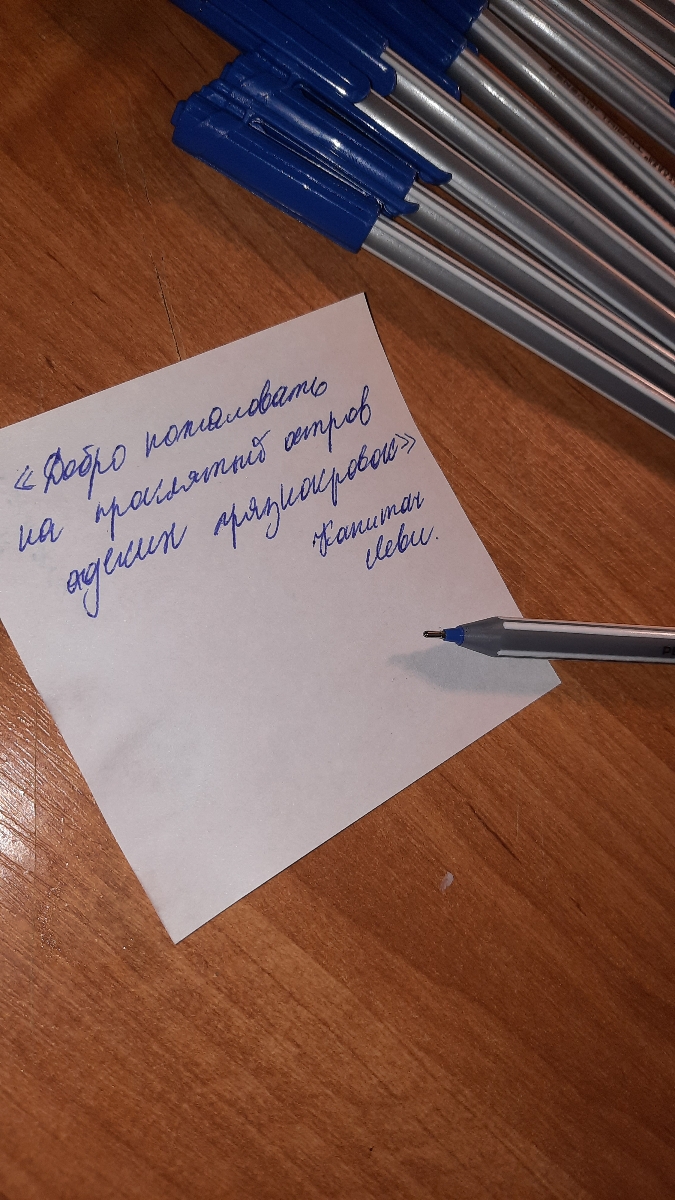 «Добро пожаловать
на проклятый остров
адских грязнокровок»
Капитан
Леви.